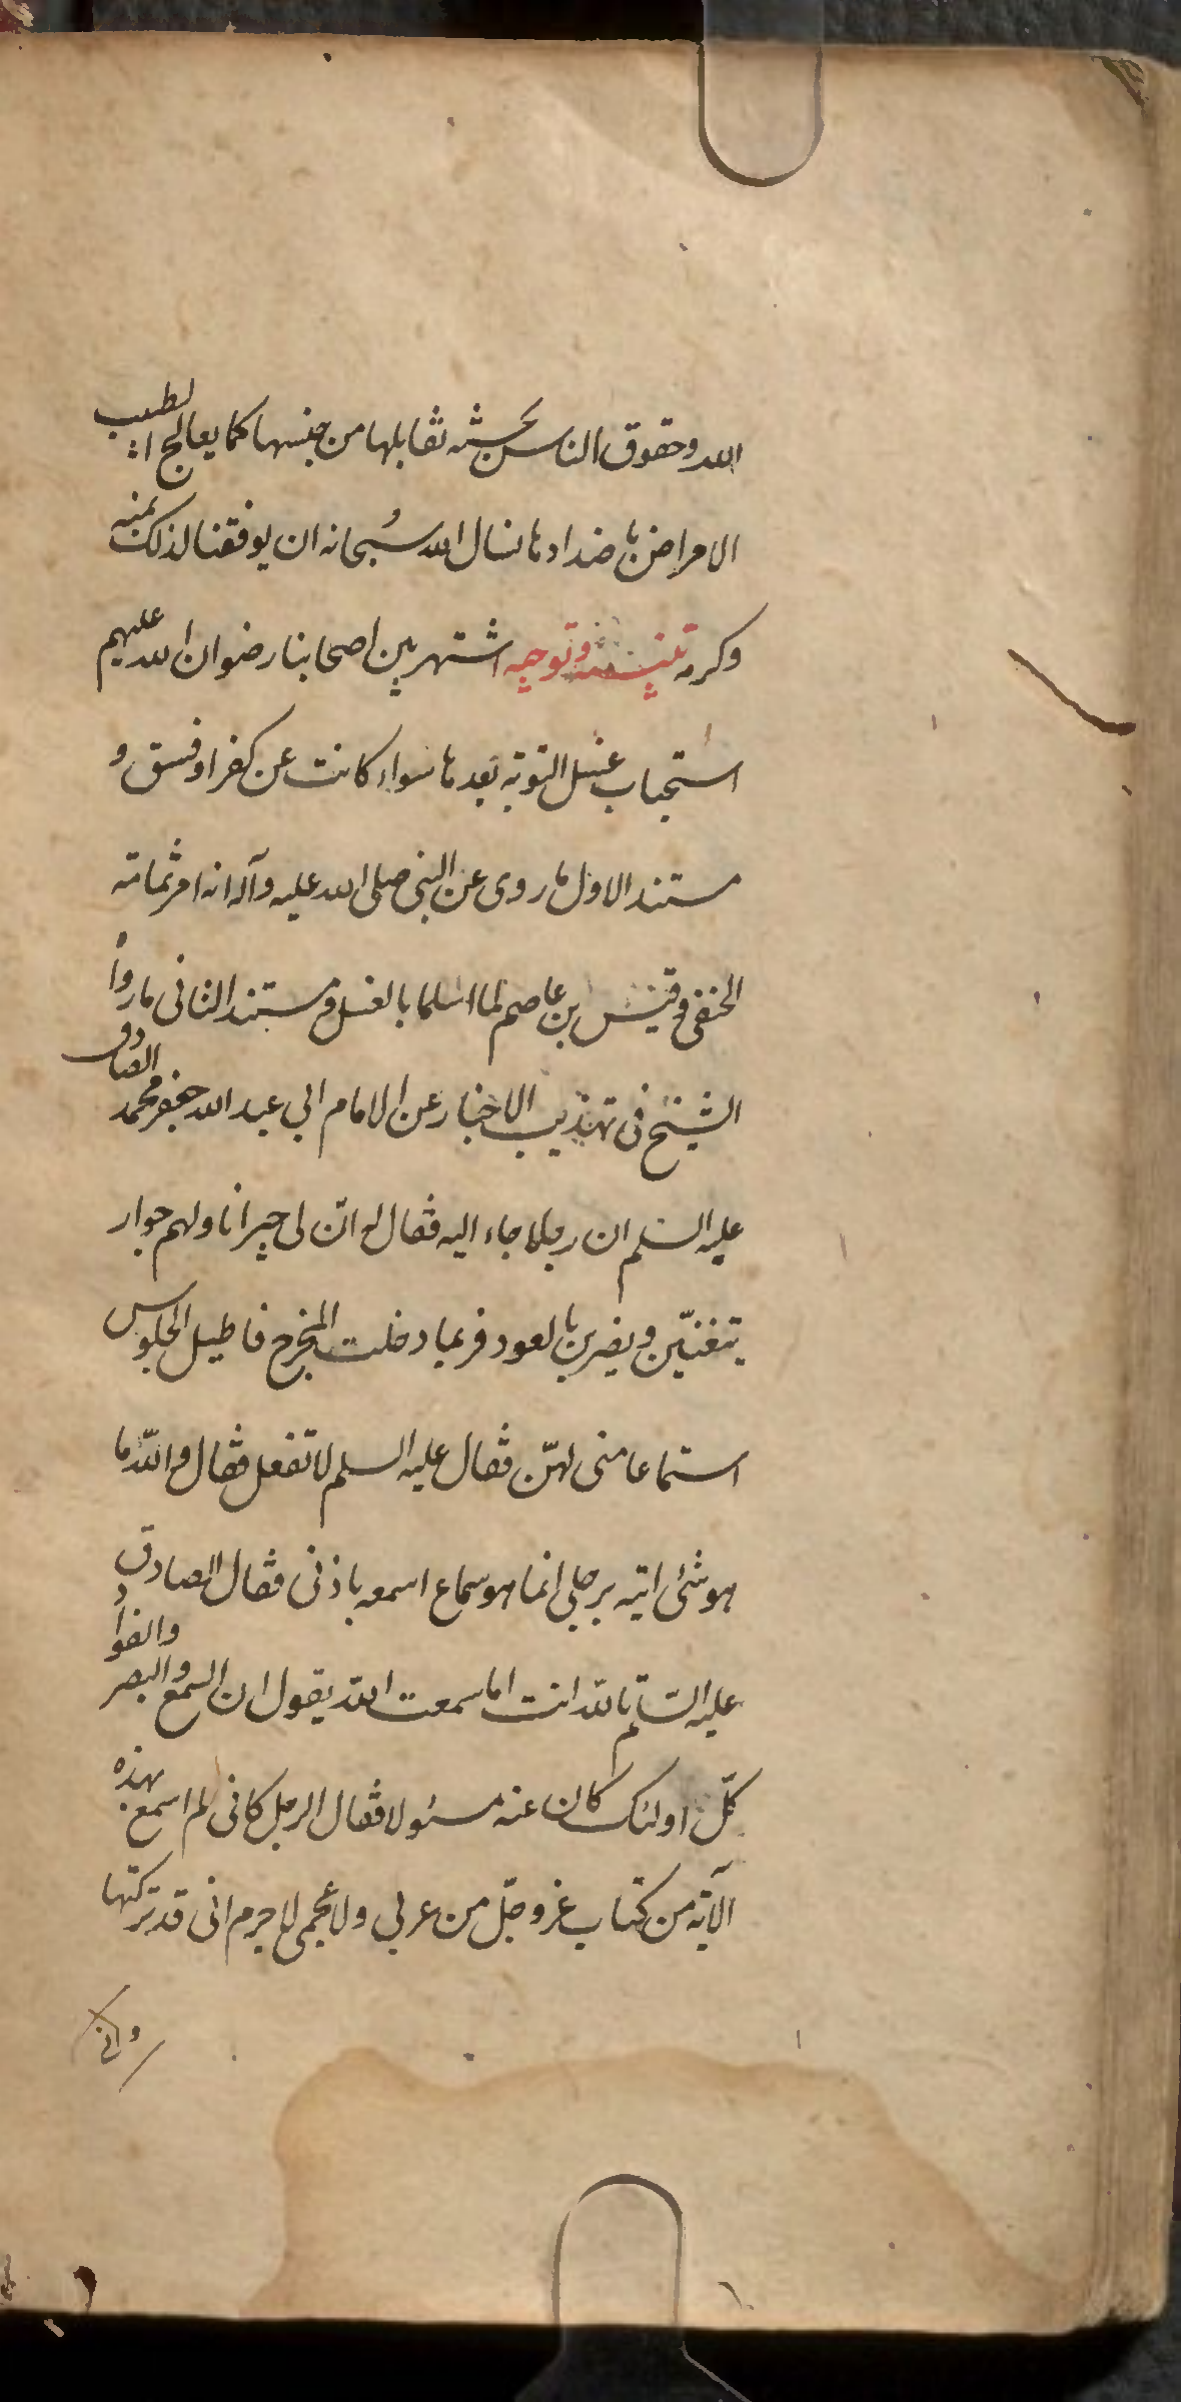 الله وحقوق الناس بحسنة تقابلها من جنسها كما يعالج الطبيب
الامراض باضدادها نسال الله سبحانه ان يوفقنا لذلك بمنه
وكرمه تنبيه وتوجيه اشتهر بين اصحابنا رضوان الله عليهم
استحباب غسل التوبة بعدها سواء كانت عن كفر او فسق و
مستند الاول ما روى عن النبي صلى الله عليه وآله انه امر ثمامة
الحنفي وقيس بن عاصم لما اسلما بالغسل ومستند الثاني ما رواه
الشيخ في تهذيب الاخبار عن الامام ابي عبد الله جعفر محمد الصادق
عليه السلم ان رجلا جاء اليه فقال له انّ لى جيرانا ولهم جوار
يتغنّين ويضربن بالعود فربما دخلت المخرج فاطيل الجلوس
استماعا منى لهنّ فقال عليه السلم لا تفعل فقال والله ما
هو شئ اتيه برجلي انما هو سماع اسمعه باذنى فقال الصادق
عليه السلم تالله انت اما سمعت الله يقول ان السمع والبصر والفواد
كلّ اولئك كان عنه مسئولا فقال الرجل كانى لم اسمع بهذه
الآية من كتاب عز وجلّ من عربي ولا عجمى لا جرم انى قد تركتها
وانى